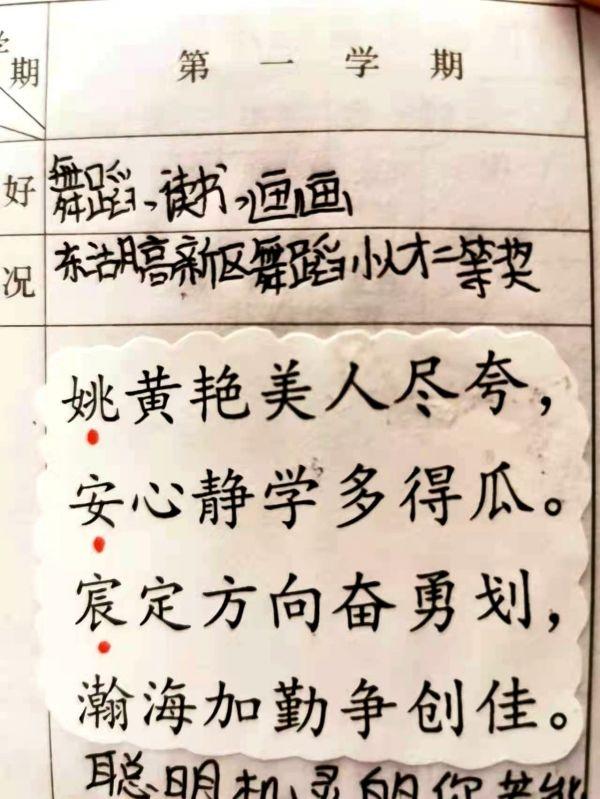 学
期 第一学期
好 舞蹈、读书、画画
况 东湖高新区舞蹈小人才二等奖
姚黄艳美人尽夸，
安心静学多得瓜。
宸定方向奋勇划，
瀚海加勤争创佳。
聪明机灵的你若能